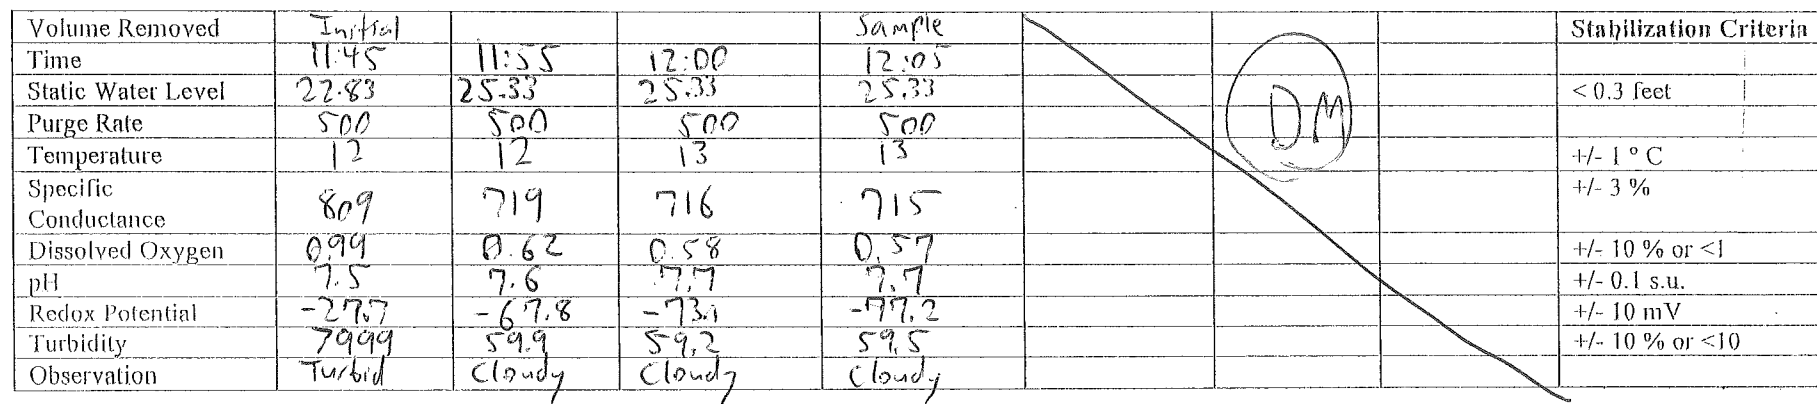 Volume Removed Initial Sample Stabilization Criteria
Time 11:45 11:55 12:00 12:05
Static Water Level 22.83 25.33 25.33 25.33 < 0.3 feet
Purge Rate 500 500 500 500
Temperature 12 12 13 13 +/- 1 ° C
Specific +/- 3 %
Conductance 809 719 716 715
Dissolved Oxygen 0.99 0.62 0.58 0.57 +/- 10 % or <1
pH 7.5 7.6 7.7 7.7 +/- 0.1 s.u.
Redox Potential -27.7 -67.8 -77.2 +/- 10 mV
Turbidity 59.9 59.2 59.5 +/- 10 % or <10
Observation Turbid Cloudy Cloudy Cloudy
DM